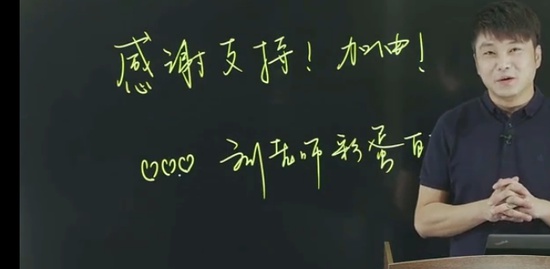 感谢支持！加油！
♡♡♡ 刘老师彩蛋